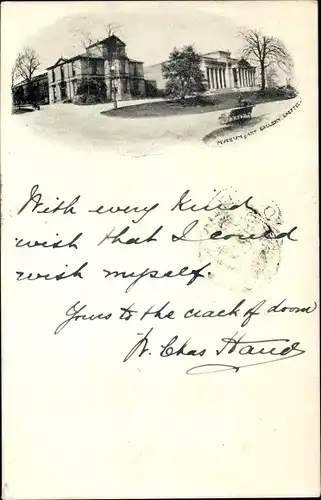 MUSEUM & ART GALLERY,
With every kind
wish that I could
wish myself.
Yours to the crack of doom
W. Chas Hand